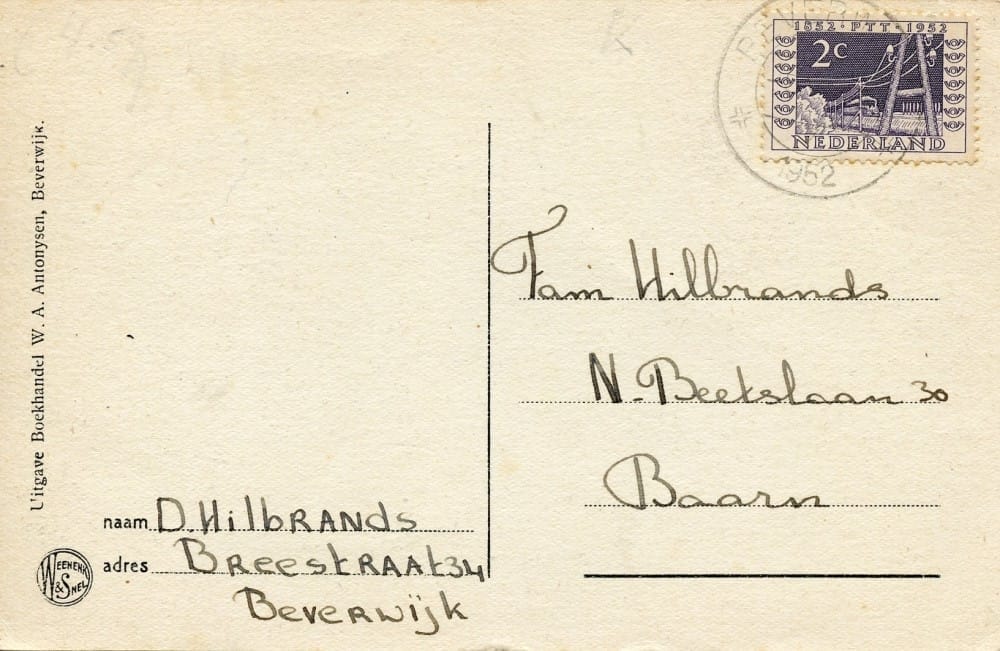 1852 · PTT · 1952
2c
NEDERLAND
1952
Uitgave Boekhandel W. A. Antonysen, Beverwijk.
Fam Hilbrands
N. Beetslaan 30
Baarn
naam D. Hilbrands
adres Breestraat 34
Beverwijk
WEENENK & SNEL